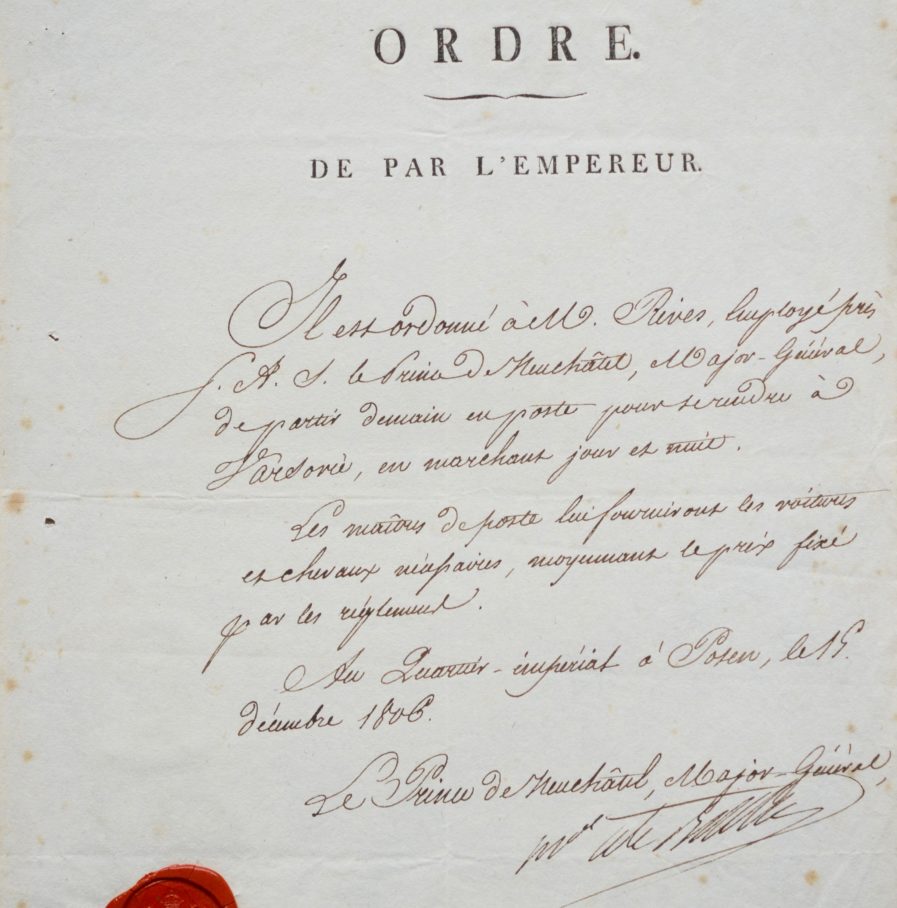 ORDRE.
DE PAR L'EMPEREUR.
Il est ordonné à M. Rives, Employé près
S. A. S. le Prince de Neuchâtel, Major-Général,
de partir demain en poste pour se rendre à
Varsovie, en marchant jour et nuit.
Les maîtres de poste lui fourniront les voitures
et chevaux nécessaires, moyennant le prix fixé
par les réglemens.
Au Quartier-impérial à Posen, le 15.
décembre 1806.
Le Prince de Neuchâtel, Major-Général,